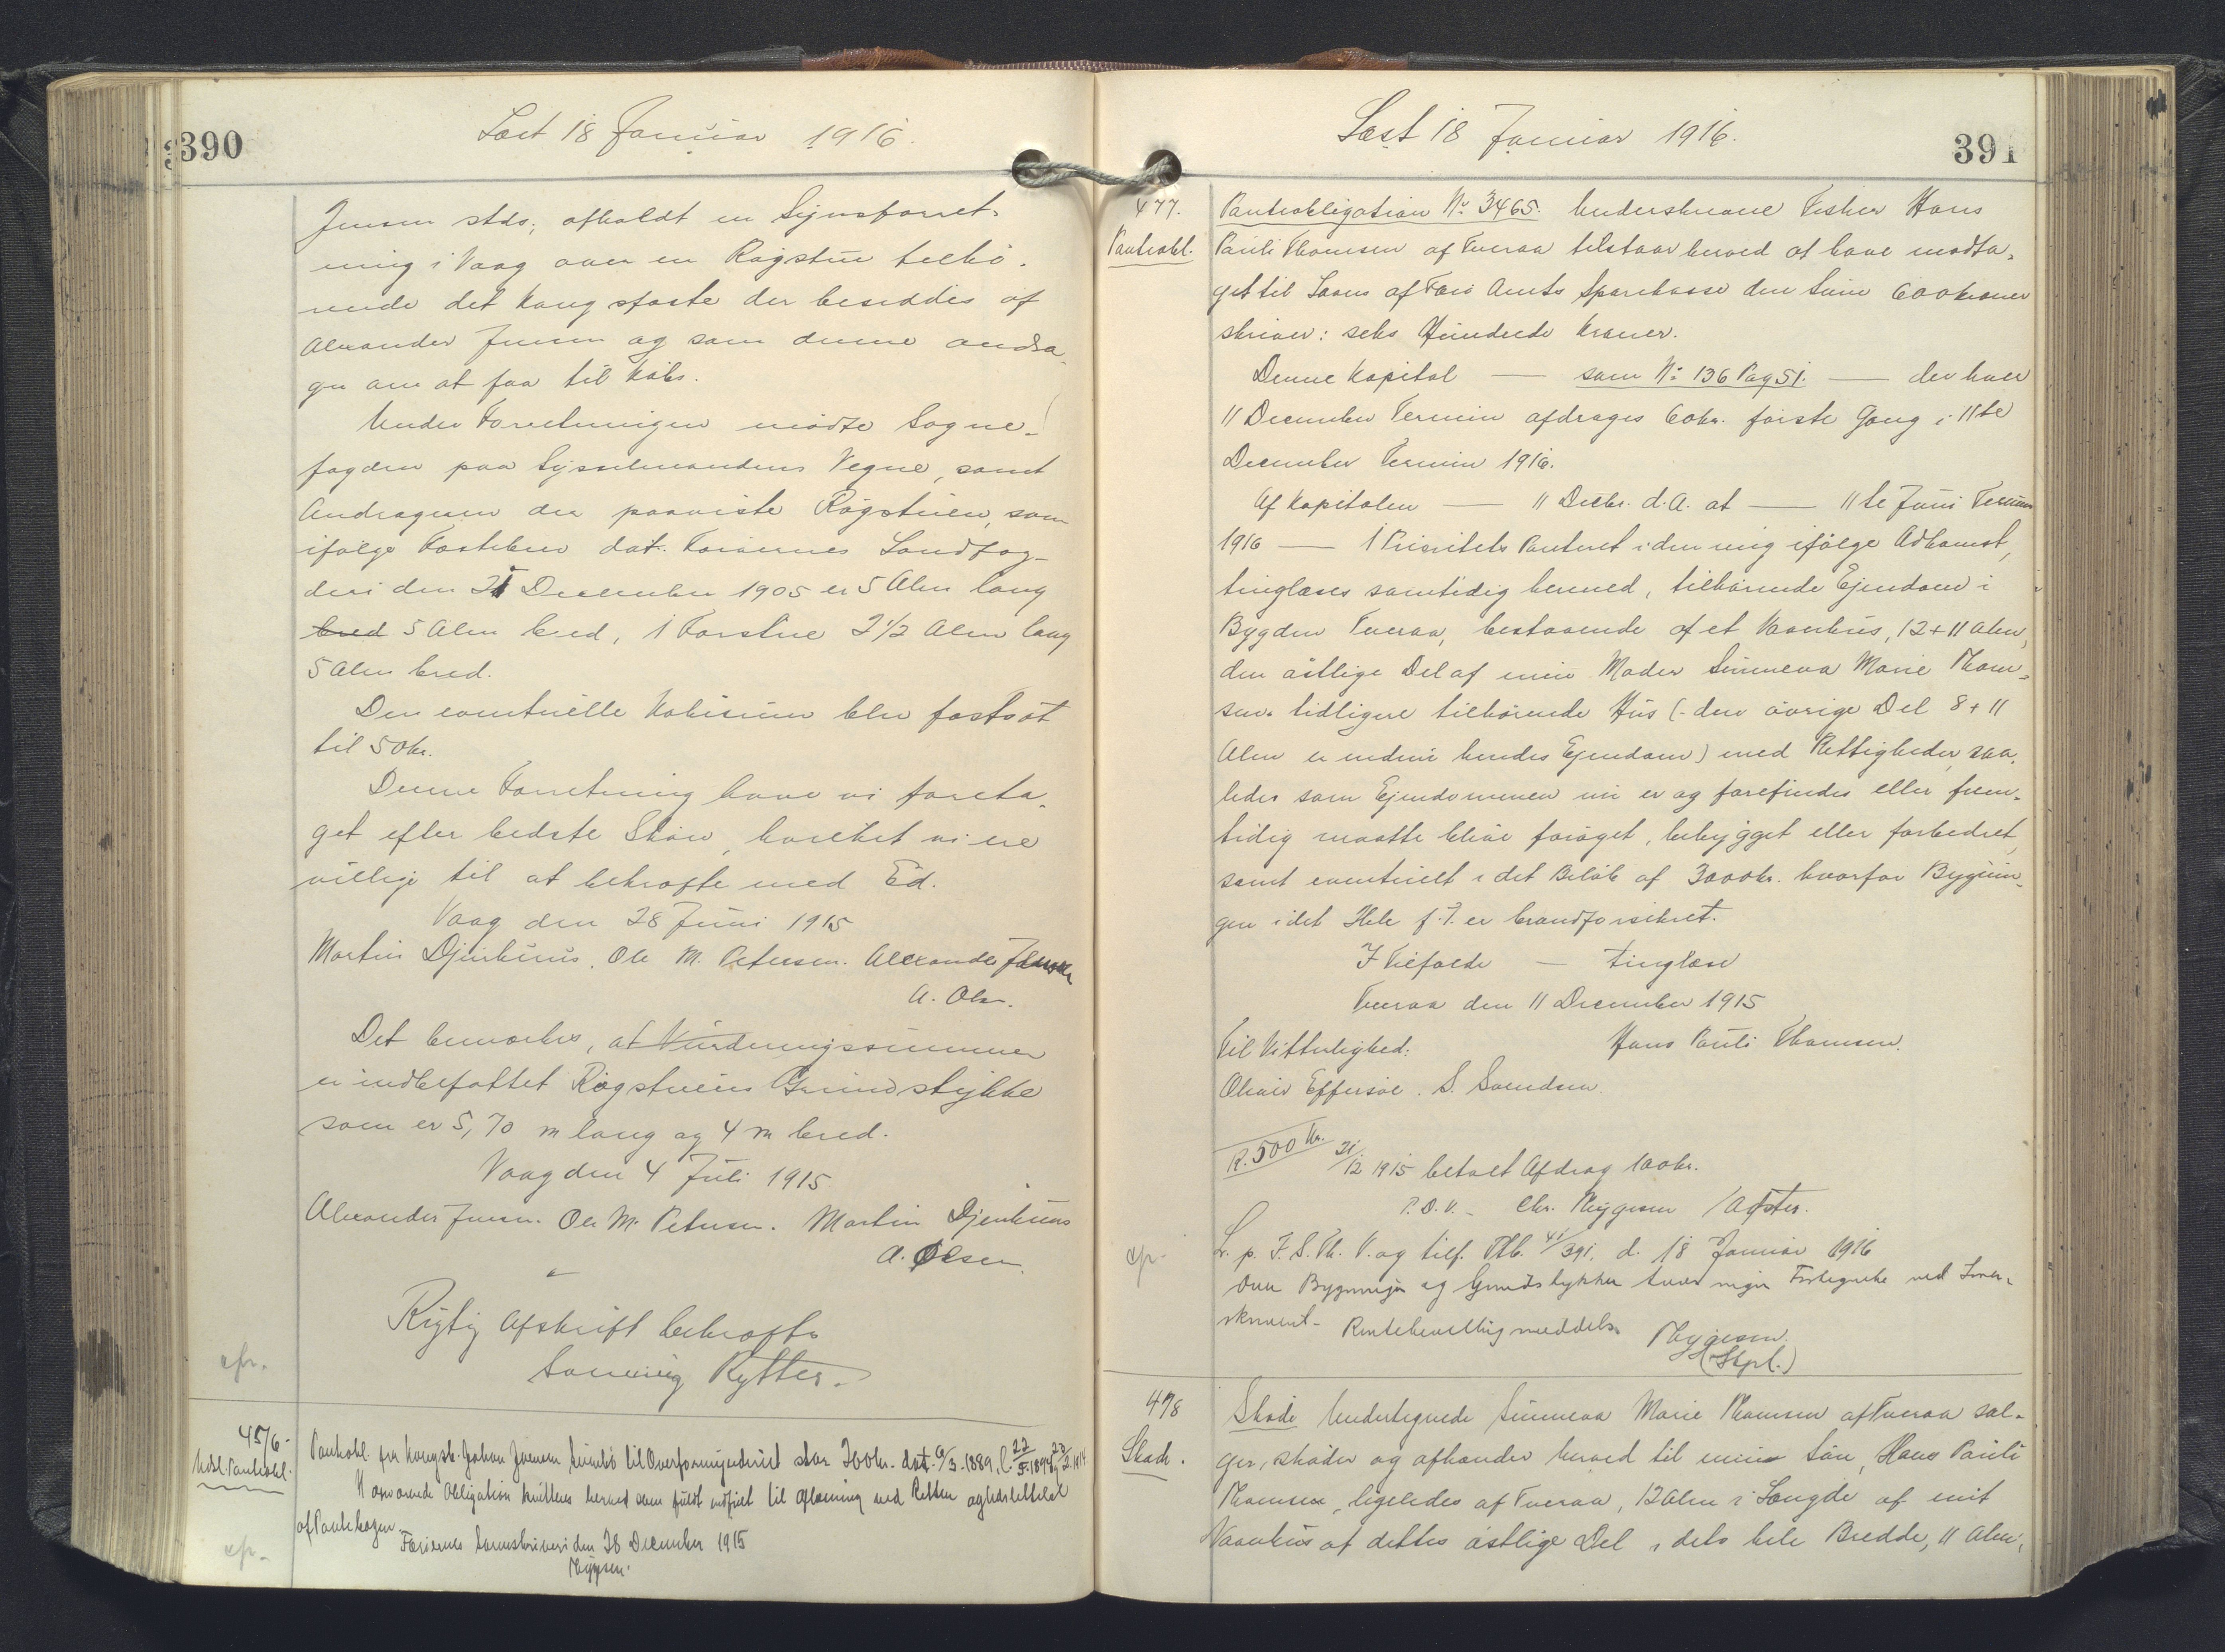 390
Læst 18 Januar 1916.
Jensen stds; afholdt en Synsforret-
ning i Vaag over en Røgstue tilhø-
rende det Kongsfæste der besiddes af
Alexander Jensen og som denne andra-
ger om at faa til Købs.
Under Forretningen mødte Sogne-
fogden paa Sysselmandens Vegne, samt
Andrageren der paaviste Røgstuen, som
ifølge Fæstebrev dat. Færøernes Landfog-
deri den 21 December 1905 er 5 Alen lang
bred 5 Alen bred, 1 Forstue 2 1/2 Alen lang
5 Alen bred.
Den eventuelle Købesum blev fastsat
til 50 kr.
Denne Forretning have vi foreta-
get efter bedste Skøn, hvilket vi ere
villige til at bekræfte med Ed.
Vaag den 28 Juni 1915
Martin Djurhuus. Ole M. Petersen. Alexander Jensen
A. Olsen.
Det bemærkes, at Vurderingssummen
er indbefattet Røgstuens Grundstykke
som er 5,70 m lang og 4 m bred.
Vaag den 4 Juli 1915.
Alexander Jensen. Ole M. Petersen. Martin Djurhuus
A. Olsen.
Rigtig Afskrift bekræftes
Rytter.
cfr.
476.
Udsl. Pantobl.
Pantobl. fra Kongsb. Johan Joensen Sumbø til Overformynderiet stor 200 kr. dat. 6/3. 1889, l.
Nærværende Obligation kvitteres herved som fuldt indfriet til Aflæsning ved Retten og Udslettelse
af Pantebogen.
Færøernes Sorenskriveri den 28 December 1915
Thygesen.
cfr.
391
Læst 18 Januar 1916.
477.
Pantobl.
Pantobligation No 3465. Underskrevne Fisker Hans
Pauli Thomsen af Tveraa tilstaar herved at have modta-
get til Laans af Færø Amts Sparekasse den Sum 600 kroner
skriver: seks Hundrede Kroner.
Denne Kapital — som No 136 Pag 51. — der hver
11 December Termin afdrages 60 kr. første Gang i 11te
December Termin 1916.
Af Kapitalen — 11 Decbr. d.A. at — 11te Juni Termin
1916 — 1 Prioritets Panteret i den mig ifølge Adkomst,
tinglæses samtidig hermed, tilhørende Ejendom i
Bygden Tveraa, bestaaende af et Vaanhus, 12 + 11 Alen,
den østlige Del af min Moder Sunneva Marie Thom-
sens tidligere tilhørende Hus (- den øvrige Del 8 + 11
Alen er endnu hendes Ejendom) med Rettigheder, saa-
ledes som Ejendommen nu er og forefindes eller frem-
tidig maatte blive forøget, bebygget eller forbedret,
samt eventuelt i det Beløb af 3000 kr. hvorfor Bygnin-
gen i det Hele f.T. er brandforsikret.
I Tilfælde — tinglæse
Tveraa den 11 December 1915
Til Vitterlighed: Hans Pauli Thomsen.
Oliver Effersøe. S. Svendsen.
R. 500 Kr. 31/12 1915 betalt Afdrag 100 kr.
P.D.V. - Chr. Thygesen /
L. p. F. S. Th. V. og tilf. Ptb. 41/391. d. 18 Januar 1916
Over Bygningen og Grundstykket haves ingen hos Soren-
skriveriet - Rentebevilling meddeles. Thygesen.
(Stpl.)
cfr.
478
Skøde.
Skøde Undertegnede Sunneva Marie Thomsen af Tveraa sæl-
ger, skøder og afhænder herved til min Søn, Hans Pauli
Thomsen, ligeledes af Tveraa, 12 Alen i Længde af mit
Vaanhus af dettes østlige Del i dets hele Bredde, 11 Alen,